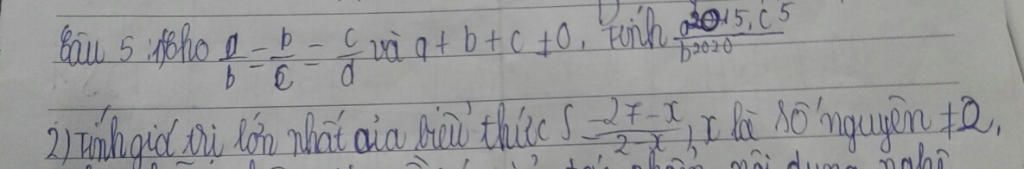 Câu 5: Cho a/b = b/c = c/a và a + b + c ≠ 0. Tính a2015.c5/b2020
2) Tính giá trị lớn nhất của biểu thức S = 27-x/2-x, x là số nguyên ≠ 2.
nội dung